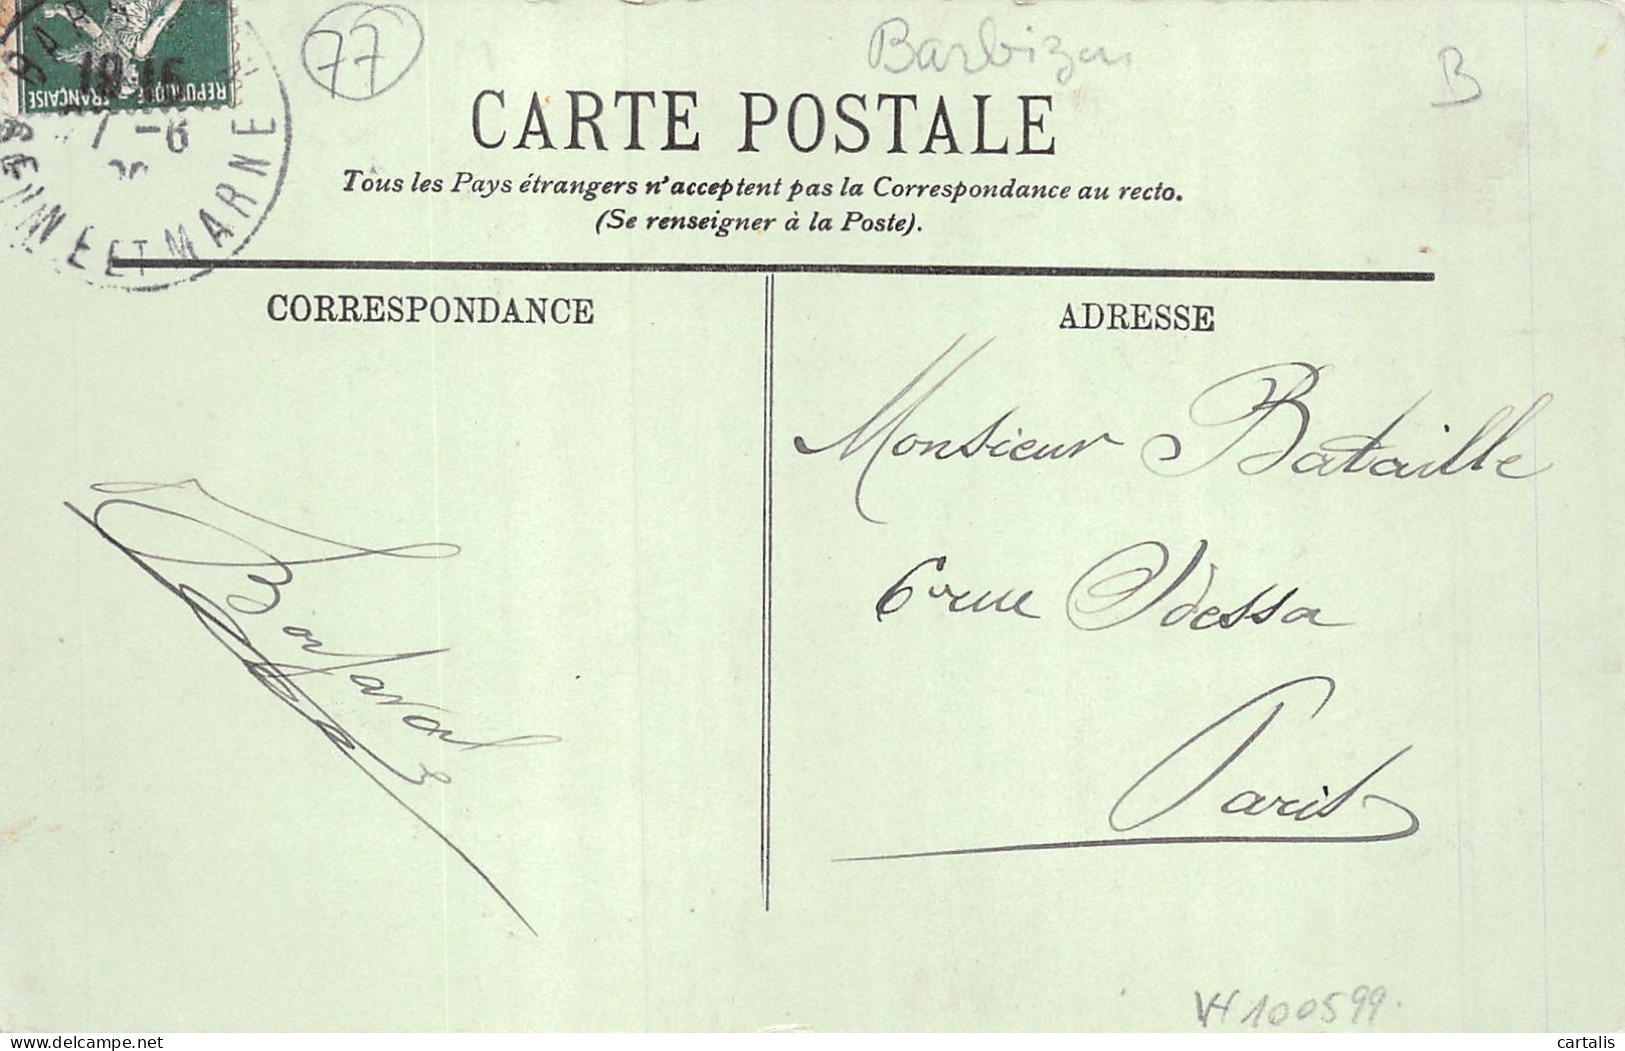 77
Barbizon
B
RÉPUBLIQUE FRANÇAISE
18·15
7 -6
SEINE ET MARNE
CARTE POSTALE
Tous les Pays étrangers n'acceptent pas la Correspondance au recto.
(Se renseigner à la Poste).
CORRESPONDANCE
ADRESSE
Monsieur Bataille
6 rue Odessa
Paris
VH 100599.
cartalis
delcampe.net